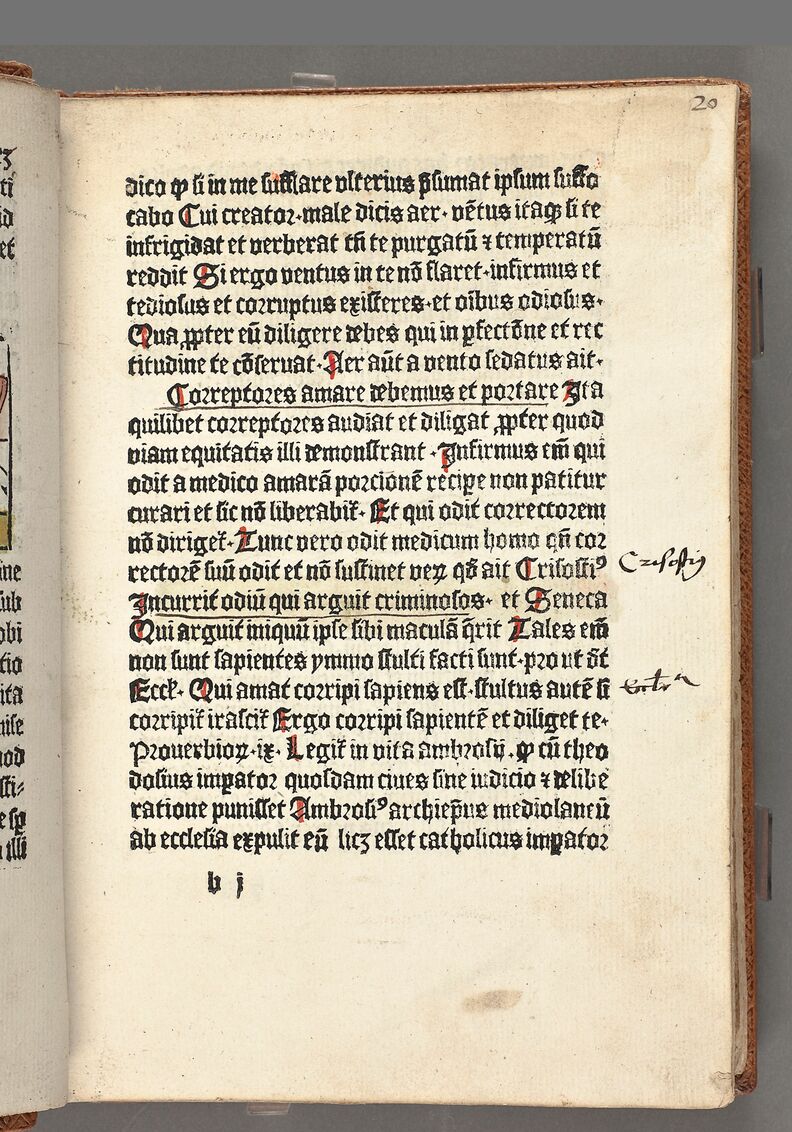 20
dico ꝙ si in me sufflare vlterius p̄sumat ipsum suffo
cabo Cui creator·male dicis aer·vētus itaqꝫ si te
infrigidat et verberat tn̄ te purgatū ⁊ temperatū
reddit Si ergo ventus in te nō flaret·infirmus et
tediosus et corruptus existeres·et oībus odiosus·
Qua ꝓpter eū diligere debes qui in ꝑfectōne et rec
titudine te cōseruat·Aer aūt a vento sedatus ait·
Correptores amare debemus et portare Ita
quilibet correptores audiat et diligat ꝓpter quod
viam equitatis illi demonstrant·Infirmus em̄ qui
odit a medico amarā porcionē recipe non patitur
curari et sic nō liberabit̄·Et qui odit correctorem
nō diriget̄·Tunc vero odit medicum homo qn̄ cor
rectorē suū odit et nō sustinet veꝝ qd̄ ait Crisostiꝰ
Incurrit odiū qui arguit criminosos· et Seneca
Qui arguit iniquū ipse sibi maculā q̄rit Tales em̄
non sunt sapientes ymmo stulti facti sunt·pro ut dt̄
Eccł·Qui amat corripi sapiens est·stultus autē si
corripit̄ irascit̄ Ergo corripi sapientē et diliget te·
Prouerbioꝝ·ix·Legit̄ in vita ambrosij·ꝙ cū theo
dosius imꝑator quosdam ciues sine iudicio ⁊ delibe
ratione punisset Ambrosiꝰ archiep̄us mediolaneū
ab ecclesia expulit eū licꝫ esset catholicus imꝑator
b j